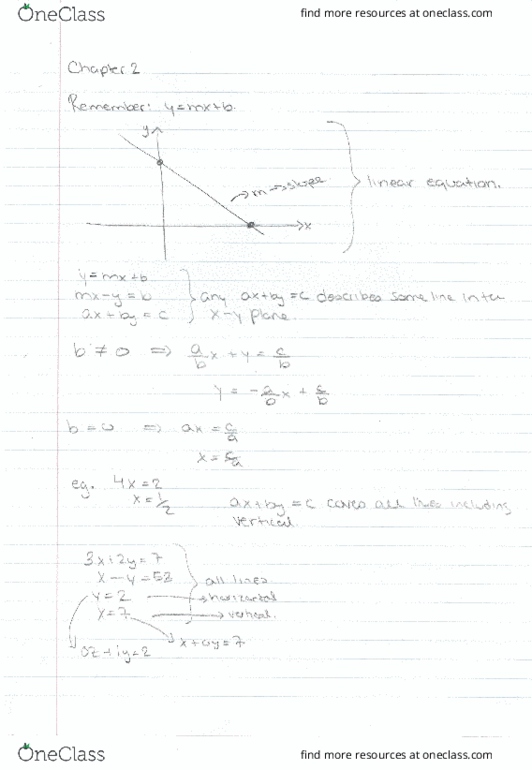 OneClass
find more resources at oneclass.com
Chapter 2
Remember: y=mx+b.
y
m → slope
x
linear equation.
y=mx+b
mx-y=b
ax+by=c
any ax+by=c describes some line in the
x-y plane.
b≠0 ⇒ a/b x + y = c/b
y = -a/b x + c/b
b=0 ⇒ ax = c/a
x = c/a
eg. 4x=2
x=1/2
ax+by=c covers all lines including
vertical.
3x+2y=7
x-y=52
y=2 → horizontal
x=7 → vertical.
all lines
0x+1y=2
x+0y=7
OneClass
find more resources at oneclass.com